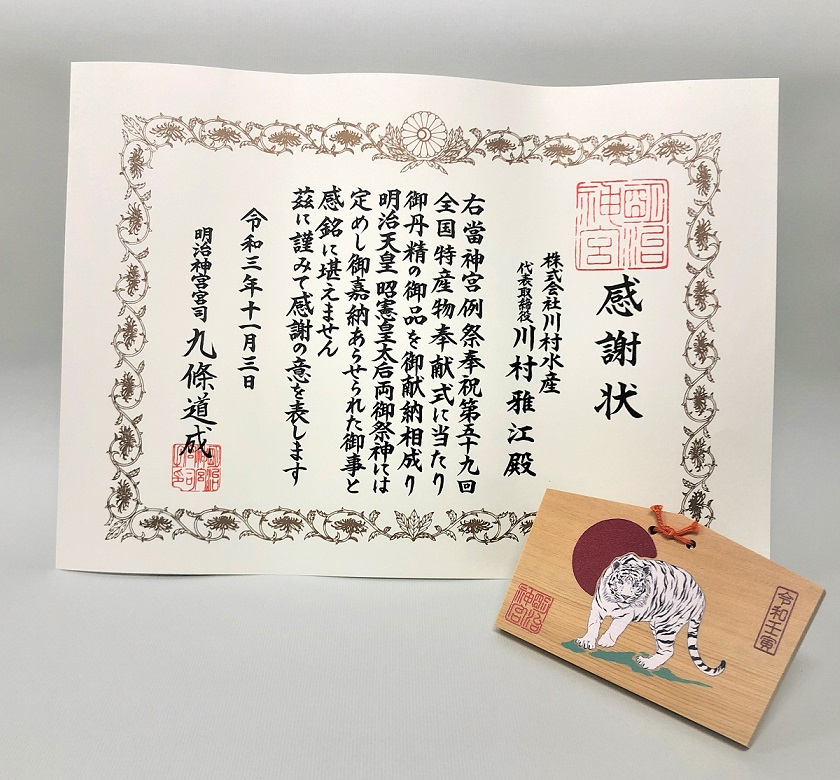 明治
神宮
感謝状
株式会社川村水産
代表取締役 川村雅江殿
右當神宮例祭奉祝第五十九回
全国特産物奉献式に当たり
御丹精の御品を御献納相成り
明治天皇 昭憲皇太后両御祭神には
定めし御嘉納あらせられた御事と
感銘に堪えません
茲に謹みて感謝の意を表します
令和三年十一月三日
明治神宮宮司 九條道成
令和壬寅
明治
神宮